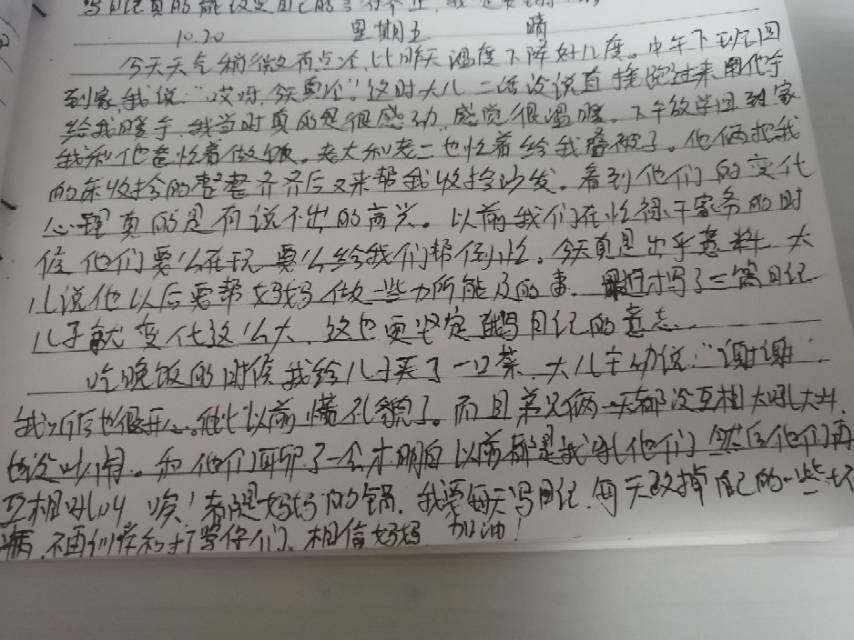 写日记真的能改变自己的
10.20 星期五 晴
今天天气稍微有点冷,比昨天温度下降好几度。中午下班回
到家,我说:"哎呀,今天真冷!"这时大儿二话没说直接跑过来用他手
给我暖手,我当时真的是很感动,感觉很温暖。下午放学回到家
我和他爸忙着做饭。老大和老二也忙着给我叠被子。他俩把我
的床收拾的整整齐齐后又来帮我收拾沙发。看到他们的变化
心理真的是有说不出的高兴。以前我们在忙碌干家务的时
候他们要么在玩要么给我们帮倒忙。今天真是出乎意料,大
儿说他以后要帮妈妈做一些力所能及的事。才写了三篇日记
儿子就变化这么大,这也更坚定我写日记的意志。
吃晚饭的时候我给儿子夹了一口菜,大儿主动说:"谢谢"
我听后也很开心。他比以前懂礼貌了。而且弟兄俩一天都没互相大吼大叫,
也没吵闹。和他们聊了一会才明白以前都是我吼他们然后他们再
互相吼叫,唉!都是妈妈的锅,我要每天写日记,每天改掉自己的一些坏
病,不再们,相信妈妈 加油!